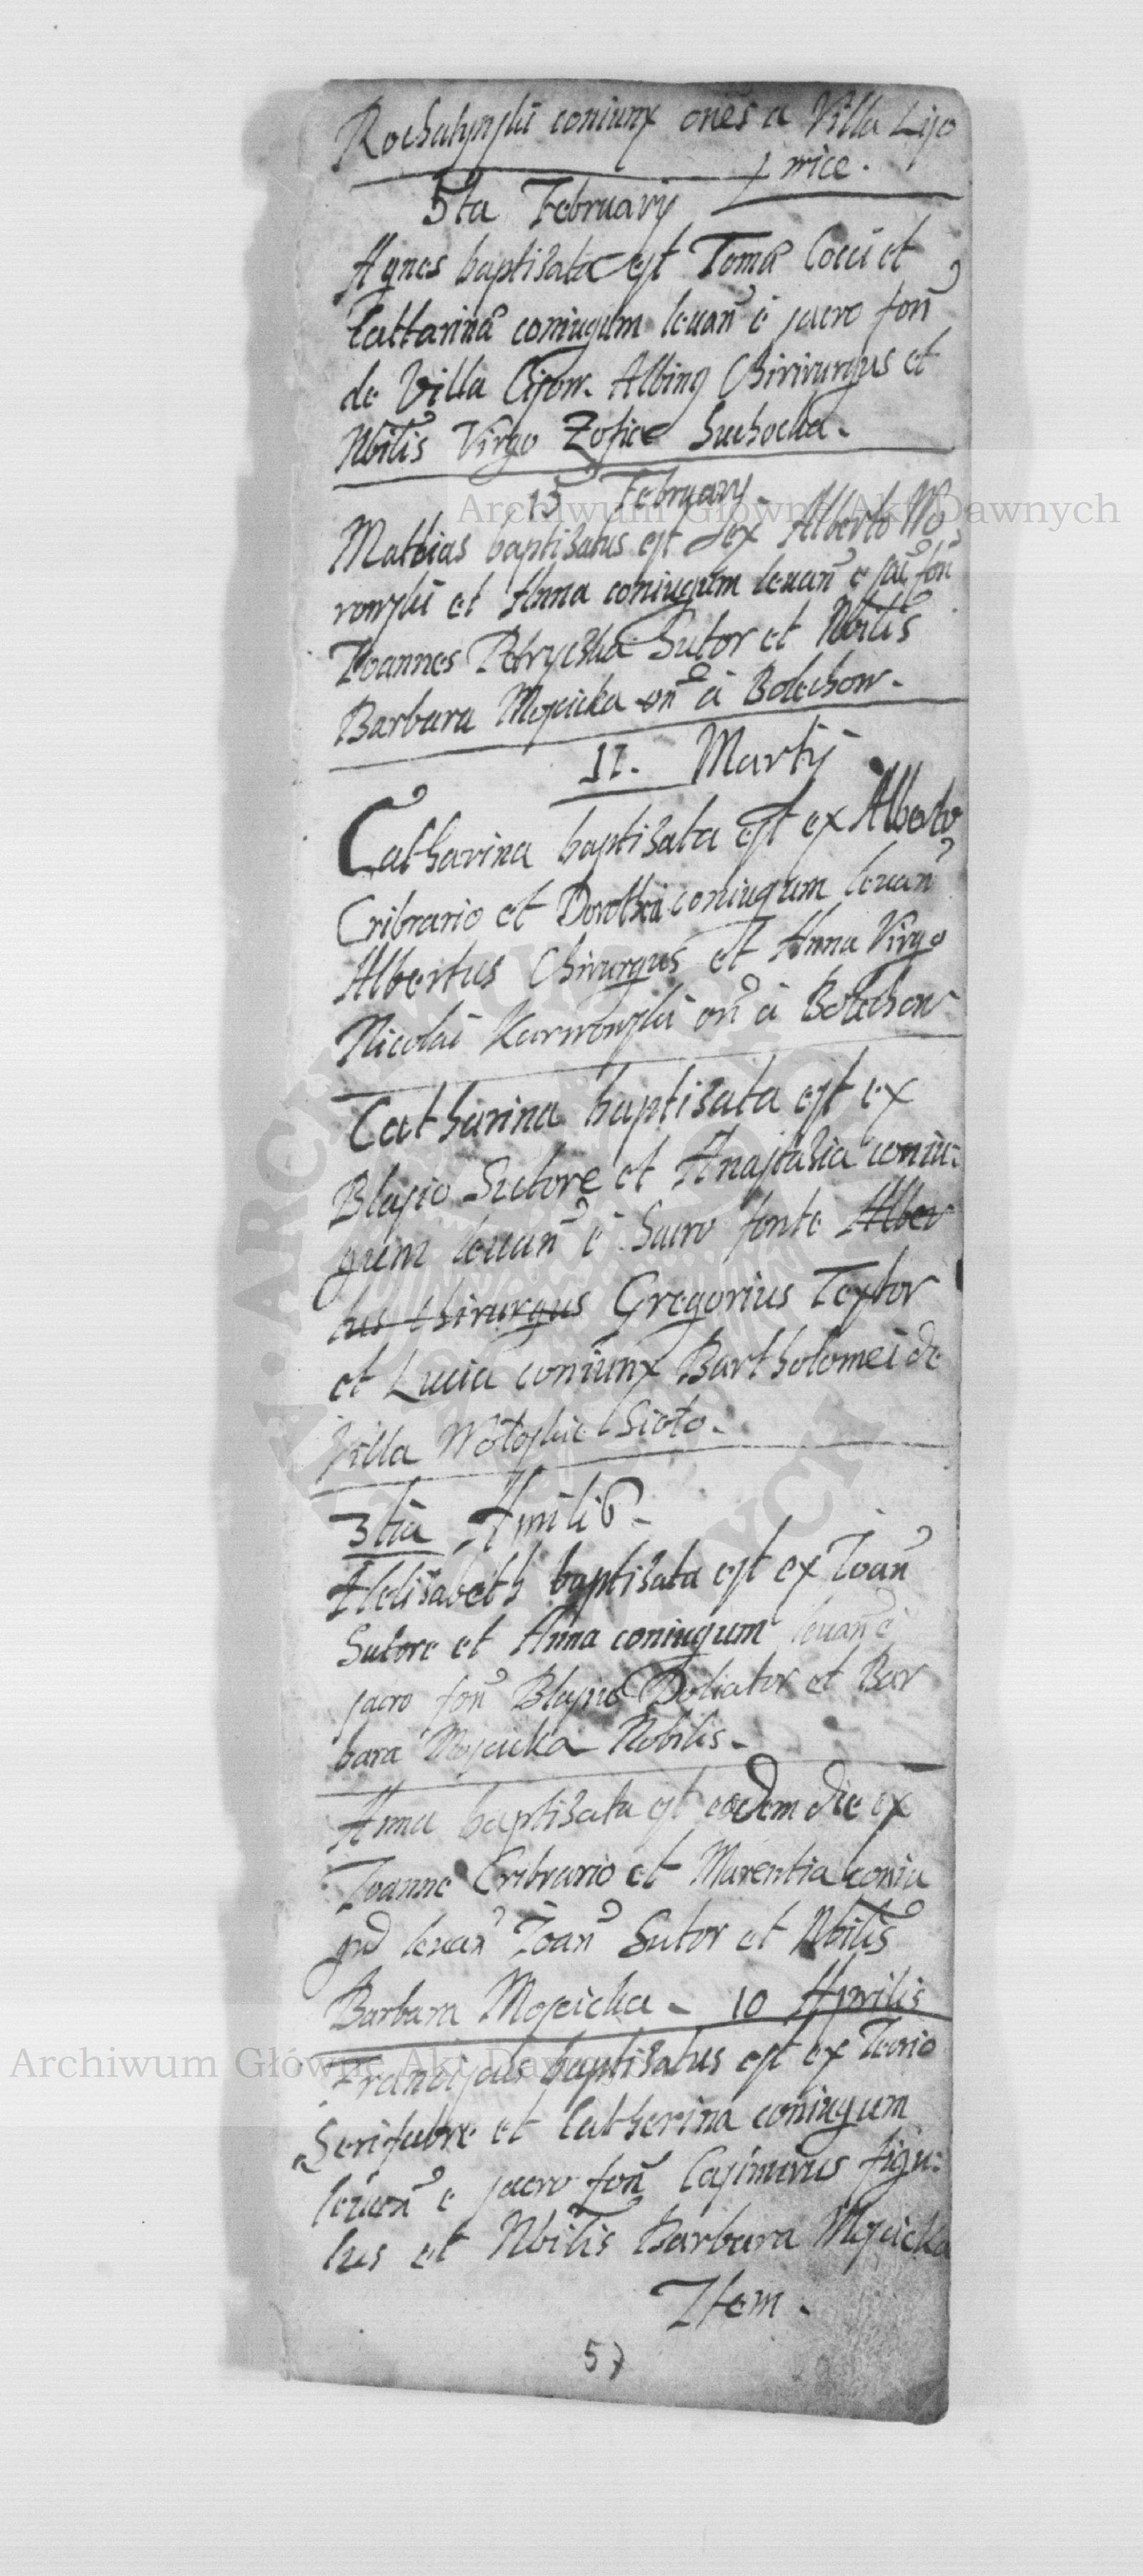 Rochalynski coniunx ones a Villa Liso
wice.
5ta February
Agnes baptisata est Toma Cocci et
Cattarina coniugum levan e sacro fon
de Villa Cisow. Albin Chirurgus et
Nbilis Virgo Zofia Suchocka.
15 February
Mathias baptisatus est ex Alberto Wo
ronski et Anna coniugum levan e sac fon
Joannes Petryczka Sutor et Nbilis
Barbara Moscicka on a Bolechow.
11. Martij
Catharina baptisata est ex Alberto
Cribrario et Dorothea coniugum levan
Albertus Chirurgus et Anna Virgo
Nicolai Karwowski on a Bolechow
Catharina baptisata est ex
Blasio Sutore et Anastasia coniu:
gum levan e Sacro fonte Alber
tus Chirurgus Gregorius Textor
et Lucia coniunx Bartholomei de
Villa Wołoskie Sioło.
3tia Aprilis
Helisabeth baptisata est ex Joan
Sutore et Anna coniugum levan e
sacro fon Blasius Doliator et Bar
bara Moscicka Nobilis.
Anna baptisata est eodem die ex
Joanne Cribrario et Marentia coniu
gu levan Joan Sutor et Nbilis
Barbara Moscicka - 10 Aprilis
Franciscus baptisatus est ex
Serifabre et Catherina coniugum
levan e sacro fon Casimirus figu:
lus et Nbilis Barbara Moscicka
Item.
57
Archiwum Główne Akt Dawnych
Archiwum Główne Akt Dawnych